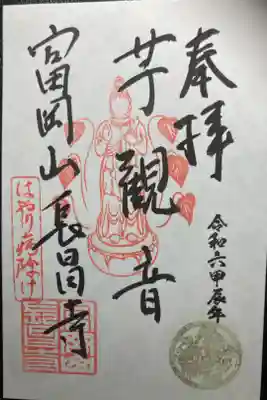 奉拝
令和六甲辰年
芋觀音
富岡山長昌寺
はやり病除け